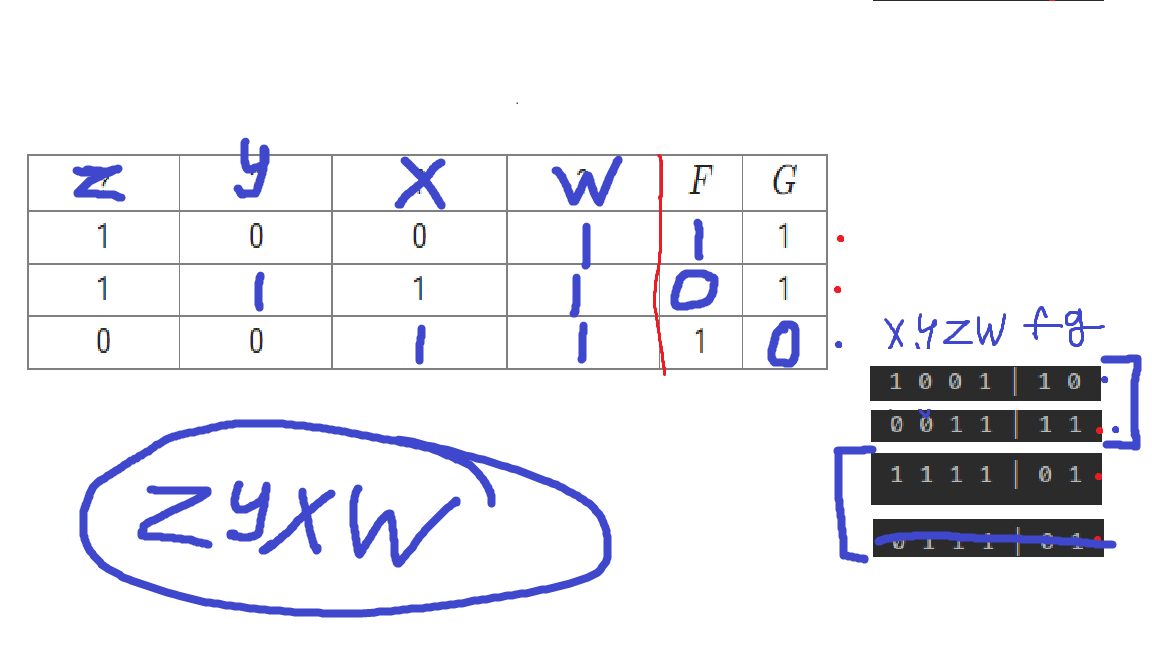 z y x w F G
1 0 0 1 1 1
1 1 1 1 0 1
0 0 1 1 1 0
x y z w f g
1 0 0 1 | 1 0
0 0 1 1 | 1 1
1 1 1 1 | 0 1
0 1 1 1 | 0 1
z y x w